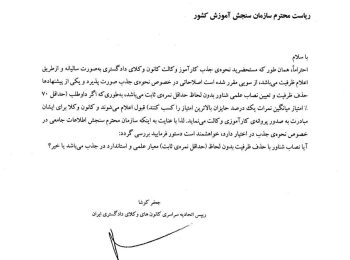 ریاست محترم سازمان سنجش آموزش کشور
با سلام
احتراماً، همان طور که مستحضرید نحوه‌ی جذب کارآموز وکالت کانون وکلای دادگستری به‌صورت سالیانه و ازطریق
اعلام ظرفیت می‌باشد، از سویی مقرر شده است اصلاحاتی در خصوص نحوه‌ی جذب صورت پذیرد و یکی از پیشنهادها
حذف ظرفیت و تعیین نصاب علمی شناور بدون لحاظ حداقل نمره‌ی ثابت می‌باشد، به‌طوری‌که اگر داوطلب (حداقل ۷۰
٪ امتیاز میانگین نمرات یک درصد حایزان بالاترین امتیاز را کسب کنند) قبول اعلام می‌شوند و کانون وکلا برای ایشان
مبادرت به صدور پروانه‌ی کارآموزی وکالت می‌نماید. لذا با عنایت به اینکه سازمان محترم سنجش اطلاعات جامعی در
خصوص نحوه‌ی جذب در اختیار دارد، خواهشمند است دستور فرمایید بررسی گردد:
آیا نصاب شناور با حذف ظرفیت بدون لحاظ (حداقل نمره‌ی ثابت) معیار علمی و استاندارد در جذب می‌باشد یا خیر؟
جعفر کوشا
رییس اتحادیه سراسری کانون های وکلای دادگستری ایران